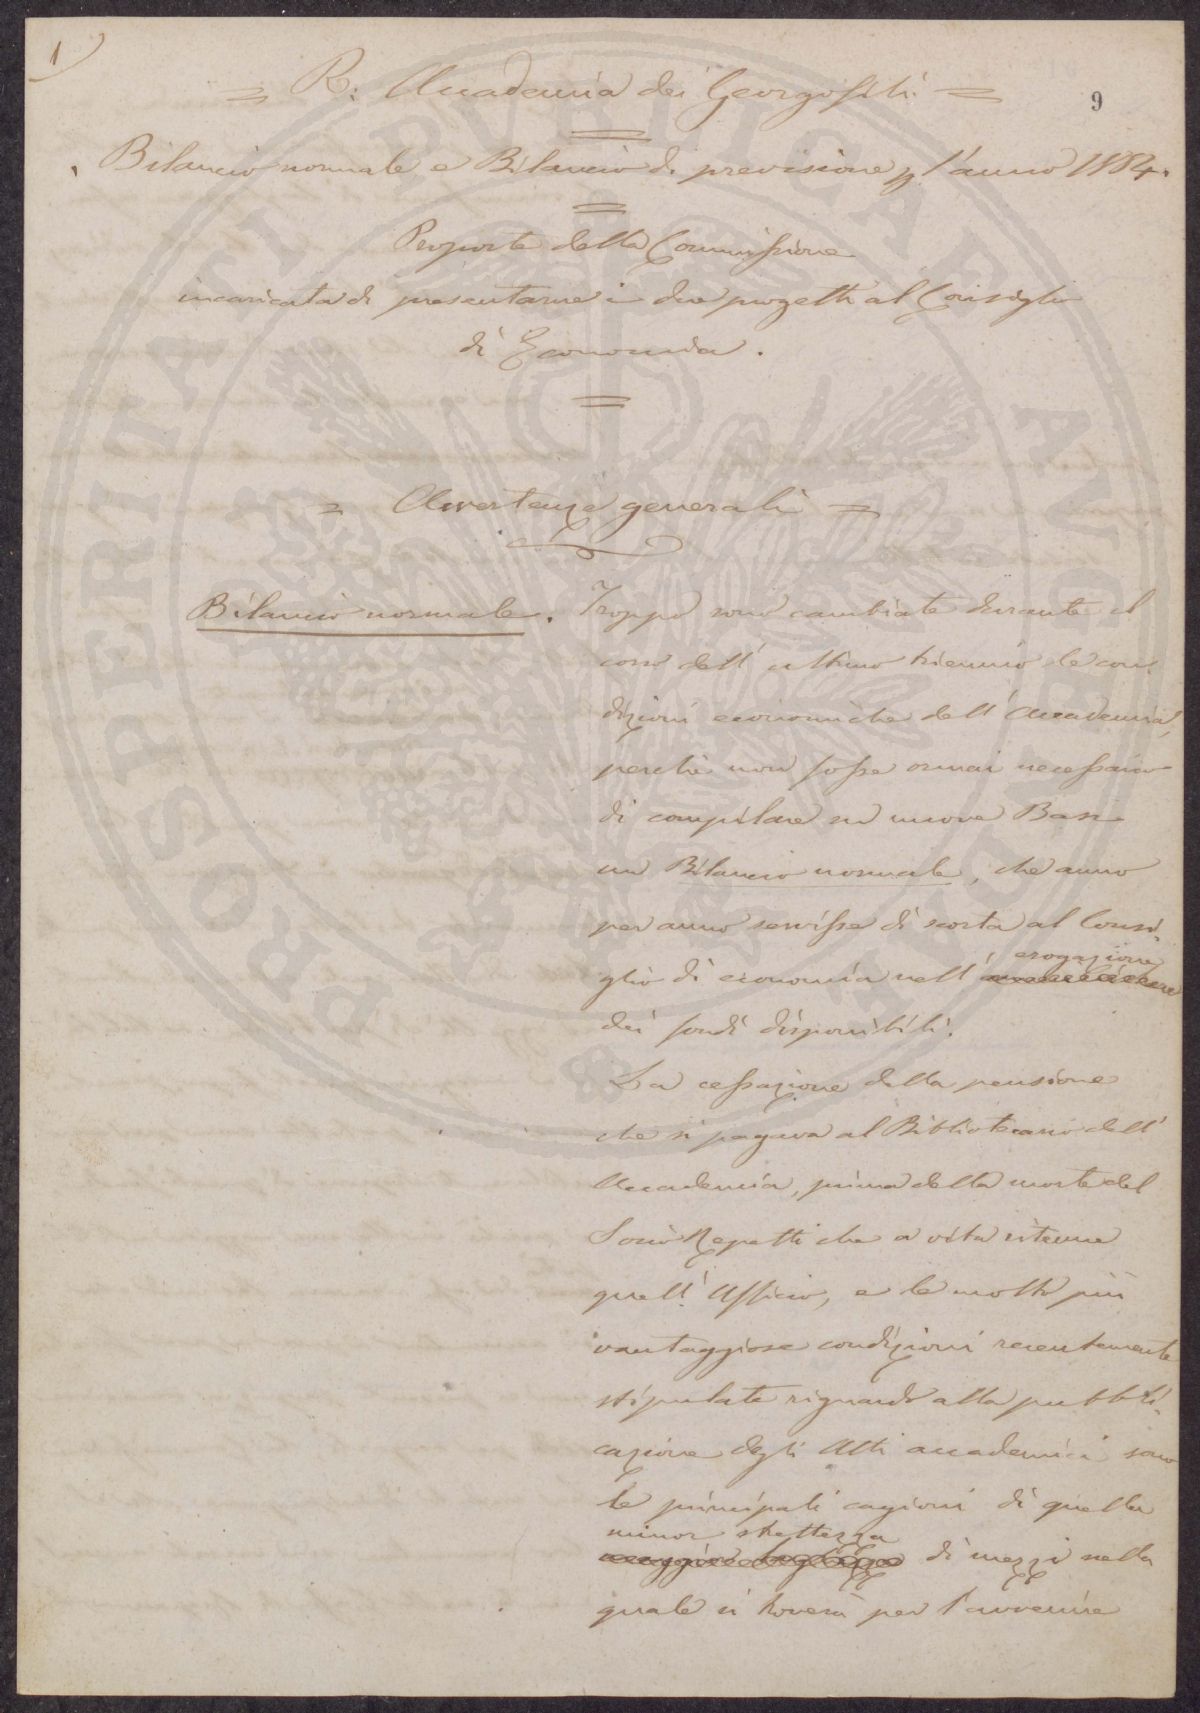 1)
= R: Accademia dei Georgofili =
9
Bilancio normale e Bilancio di previsione p l'anno 1884.
Proposte della Commissione
incaricata di presentarne i due progetti al Consiglio
di Economia.
= Avvertenze generali =
Bilancio normale. Troppo sono cambiate durante il
corso dell'ultimo triennio le con-
dizioni economiche dell'Accademia,
perchè non fosse ormai necessario
di compilare su nuove Basi
un Bilancio normale, che anno
per anno servisse di scorta al Consi-
erogazione
glio di economia nell'
dei fondi disponibili.
La cessazione della pensione
che si pagava al Bibliotecario dell'
Accademia, prima della morte del
Socio Repetti che a vita ritenne
quell'Ufficio, e le molto più
vantaggiose condizioni recentemente
stipulate riguardo alla pubbli-
cazione degli Atti accademici sono
le principali cagioni di quella
minor strettezza
di mezzi nella
quale si troverà per l'avvenire
PROSPERITATI PUBLICAE AUGENDAE